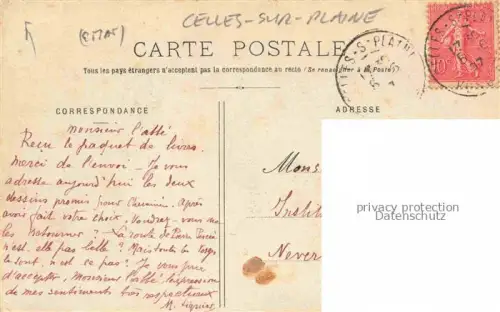 CELLES-SUR-PLAINE
CARTE POSTALE
Tous les pays étrangers n'acceptent pas la correspondance au recto (Se renseigner à la Poste).
CORRESPONDANCE
ADRESSE
Monsieur l'abbé
Reçu le paquet de livres.
Merci de l'envoi. Je vous
adresse aujourd'hui les deux
dessins promis pour Après
avoir fait votre choix, Voudrez-vous me
les Retourner? La route de Pierre Percée
n'est-elle pas belle? Mais toutes les
le sont, n'est-ce pas? Je vous prie
d'accepter, Monsieur l'abbé l'expression
de mes sentiments très respectueux
Mons
Instit
Never
privacy protection
Datenschutz
10